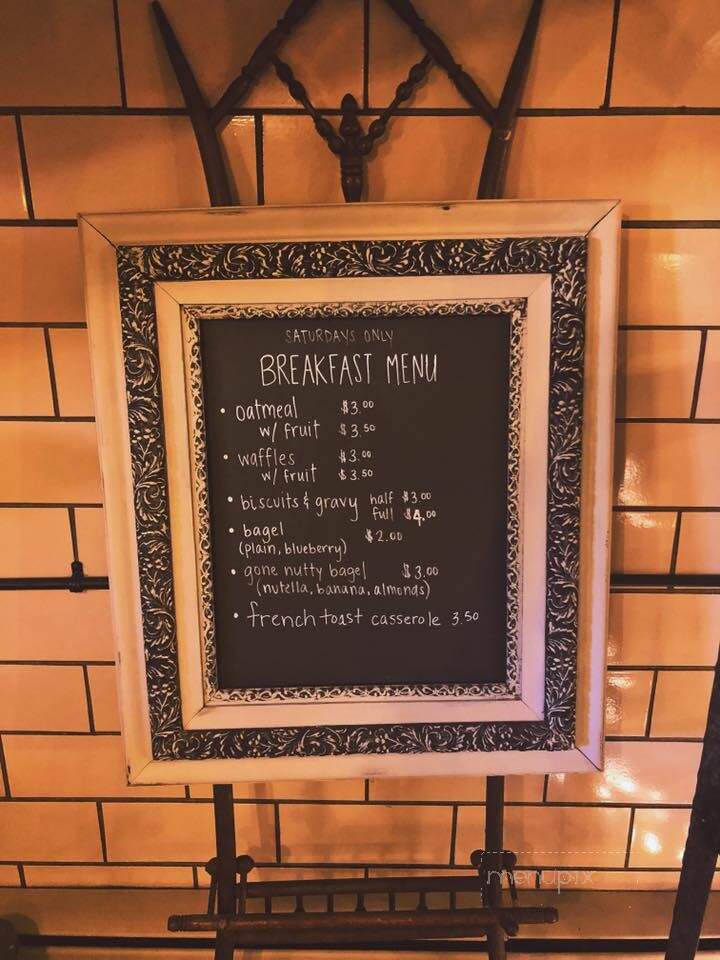 SATURDAYS ONLY
BREAKFAST MENU
• oatmeal $3.00
w/ fruit $3.50
• waffles $3.00
w/ fruit $3.50
• biscuits & gravy half $3.00
full $4.00
• bagel $2.00
(plain, blueberry)
• gone nutty bagel $3.00
(nutella, banana, almonds)
• french toast casserole 3.50
menupix